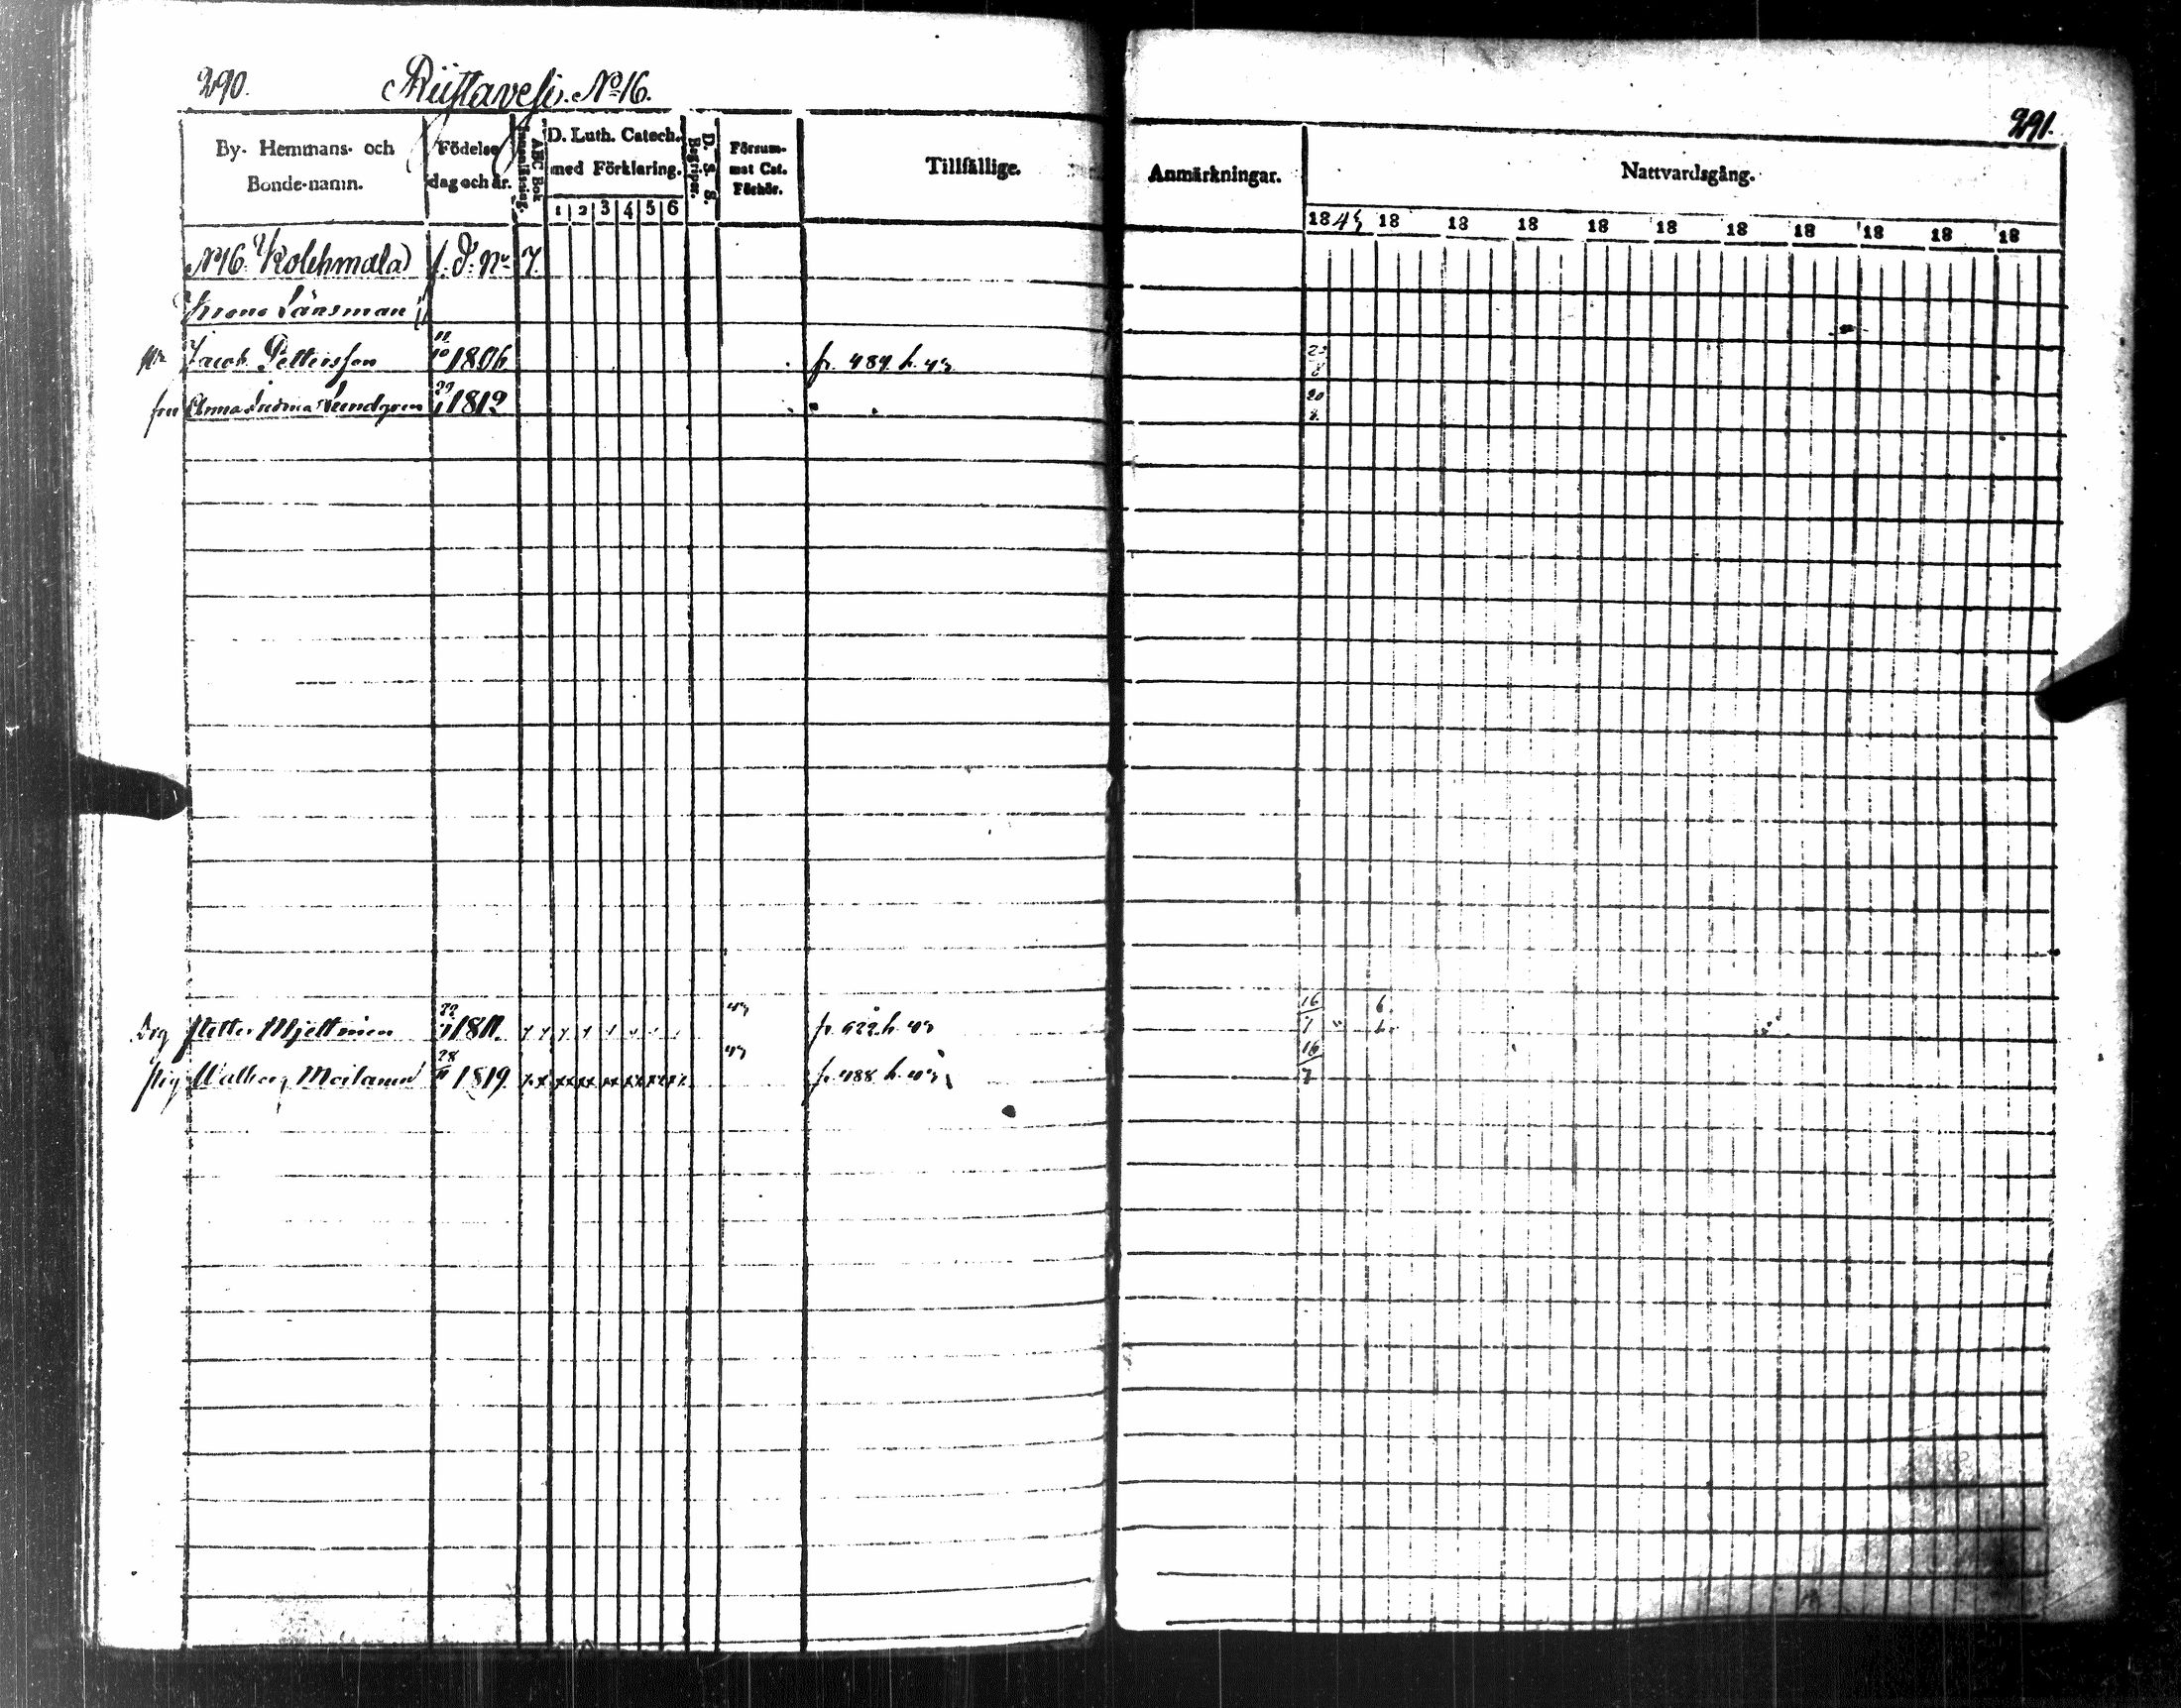 290.
Riistavesi. No 16.
By- Hemmans- och Bonde-namn.
Födelse dag och år.
Innanläsning.
ABC Bok
D. Luth. Catech. med Förklaring.
1 2 3 4 5 6
D. S. S. Begriper.
Försum-mat Cat. Förhör.
Tillfällige.
No 16 Kolehmala f. d. No 7.
Krono Länsman
Jacob Pettersson 11/10 1806 fr. 489 h. 43
fru Anna Lundgren 1819
Drg Petter Mjettinen 1811. 43 fr. 522 h. 43
pig Walborg Moilanen 28 1819 43 fr. 488 h. 43
291.
Anmärkningar.
Nattvardsgång.
1843 18 18 18 18 18 18 18 18 18 18
20
8
16 6
7
16
7